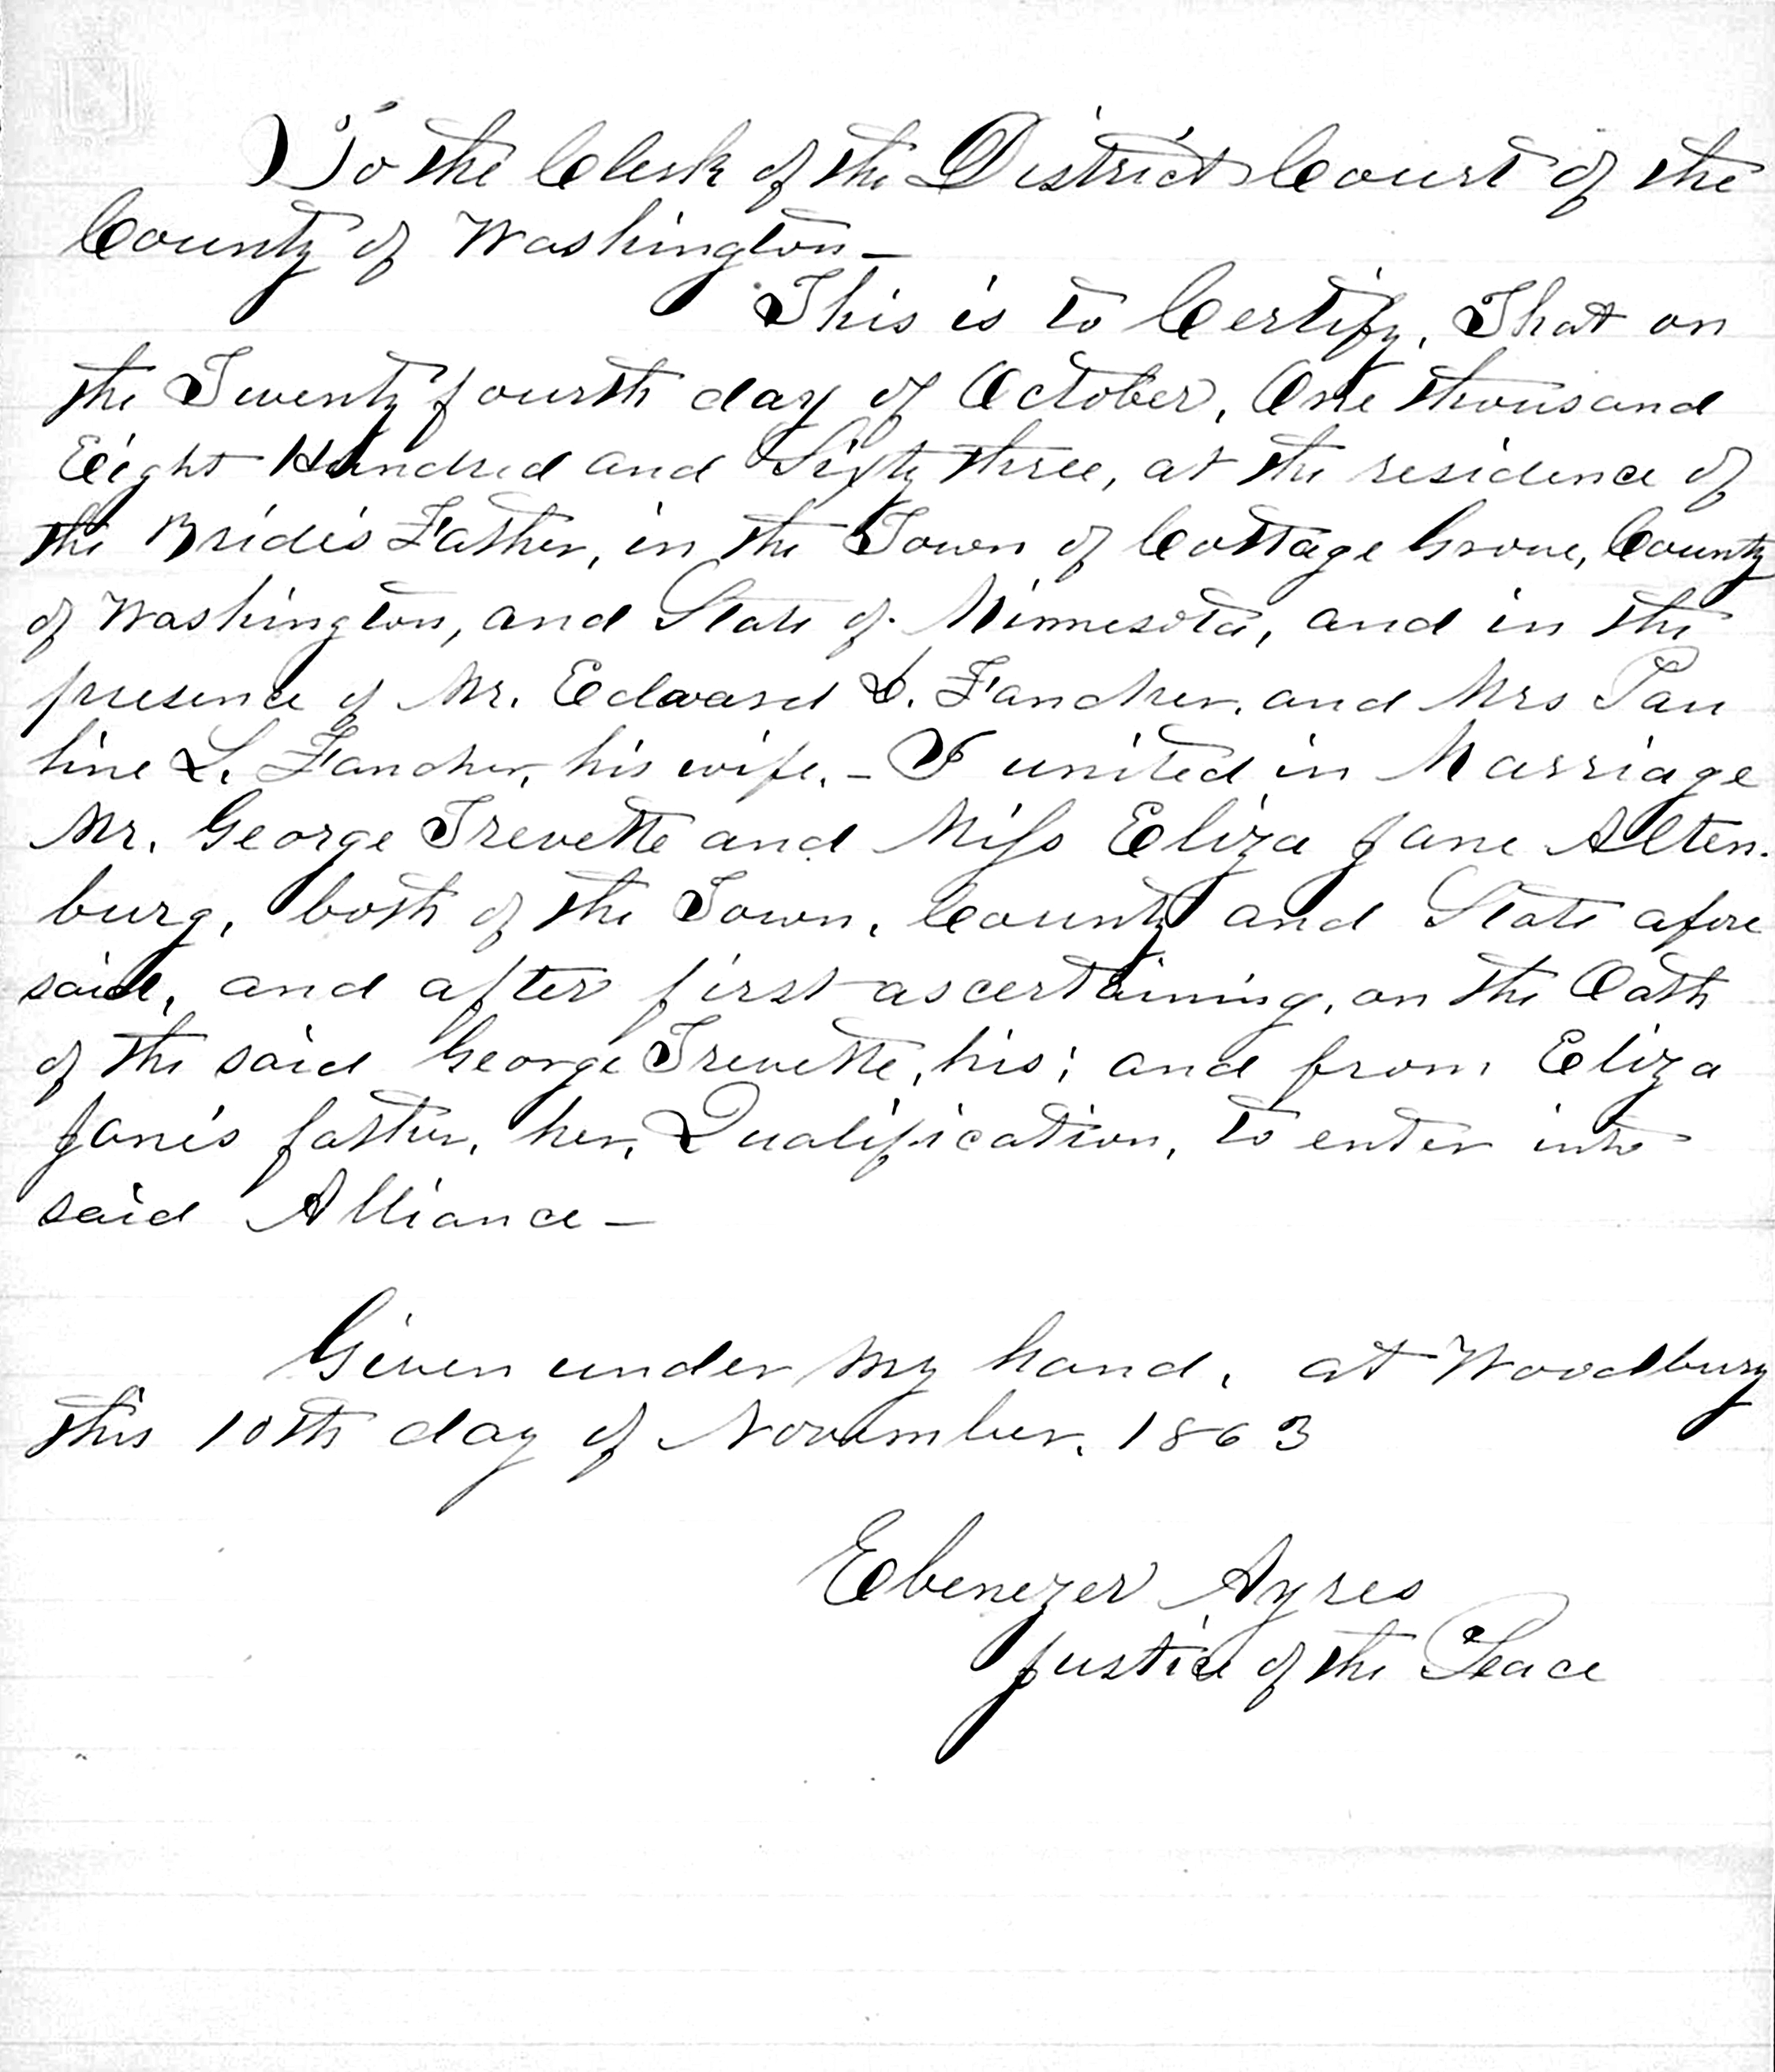 To the Clerk of the District Court of the
County of Washington —
This is to Certify, That on
the Twenty fourth day of October, One thousand
Eight Hundred and Sixty three, at the residence of
the Bride's Father, in the Town of Cottage Grove, County
of Washington, and State of Minnesota, and in the
presence of Mr. Edward S. Fancher, and Mrs Pau
line L. Fancher, his wife. — I united in Marriage
Mr. George Trevette and Miss Eliza Jane Alten-
burg, both of the Town, County and State afore
said, and after first ascertaining, on the Oath
of the said George Trevette, his; and from Eliza
Jane's father, her, Qualification, to enter into
said Alliance —
Given under my hand, at Woodbury
this 10th day of November, 1863
Ebenezer Ayres
Justice of the Peace